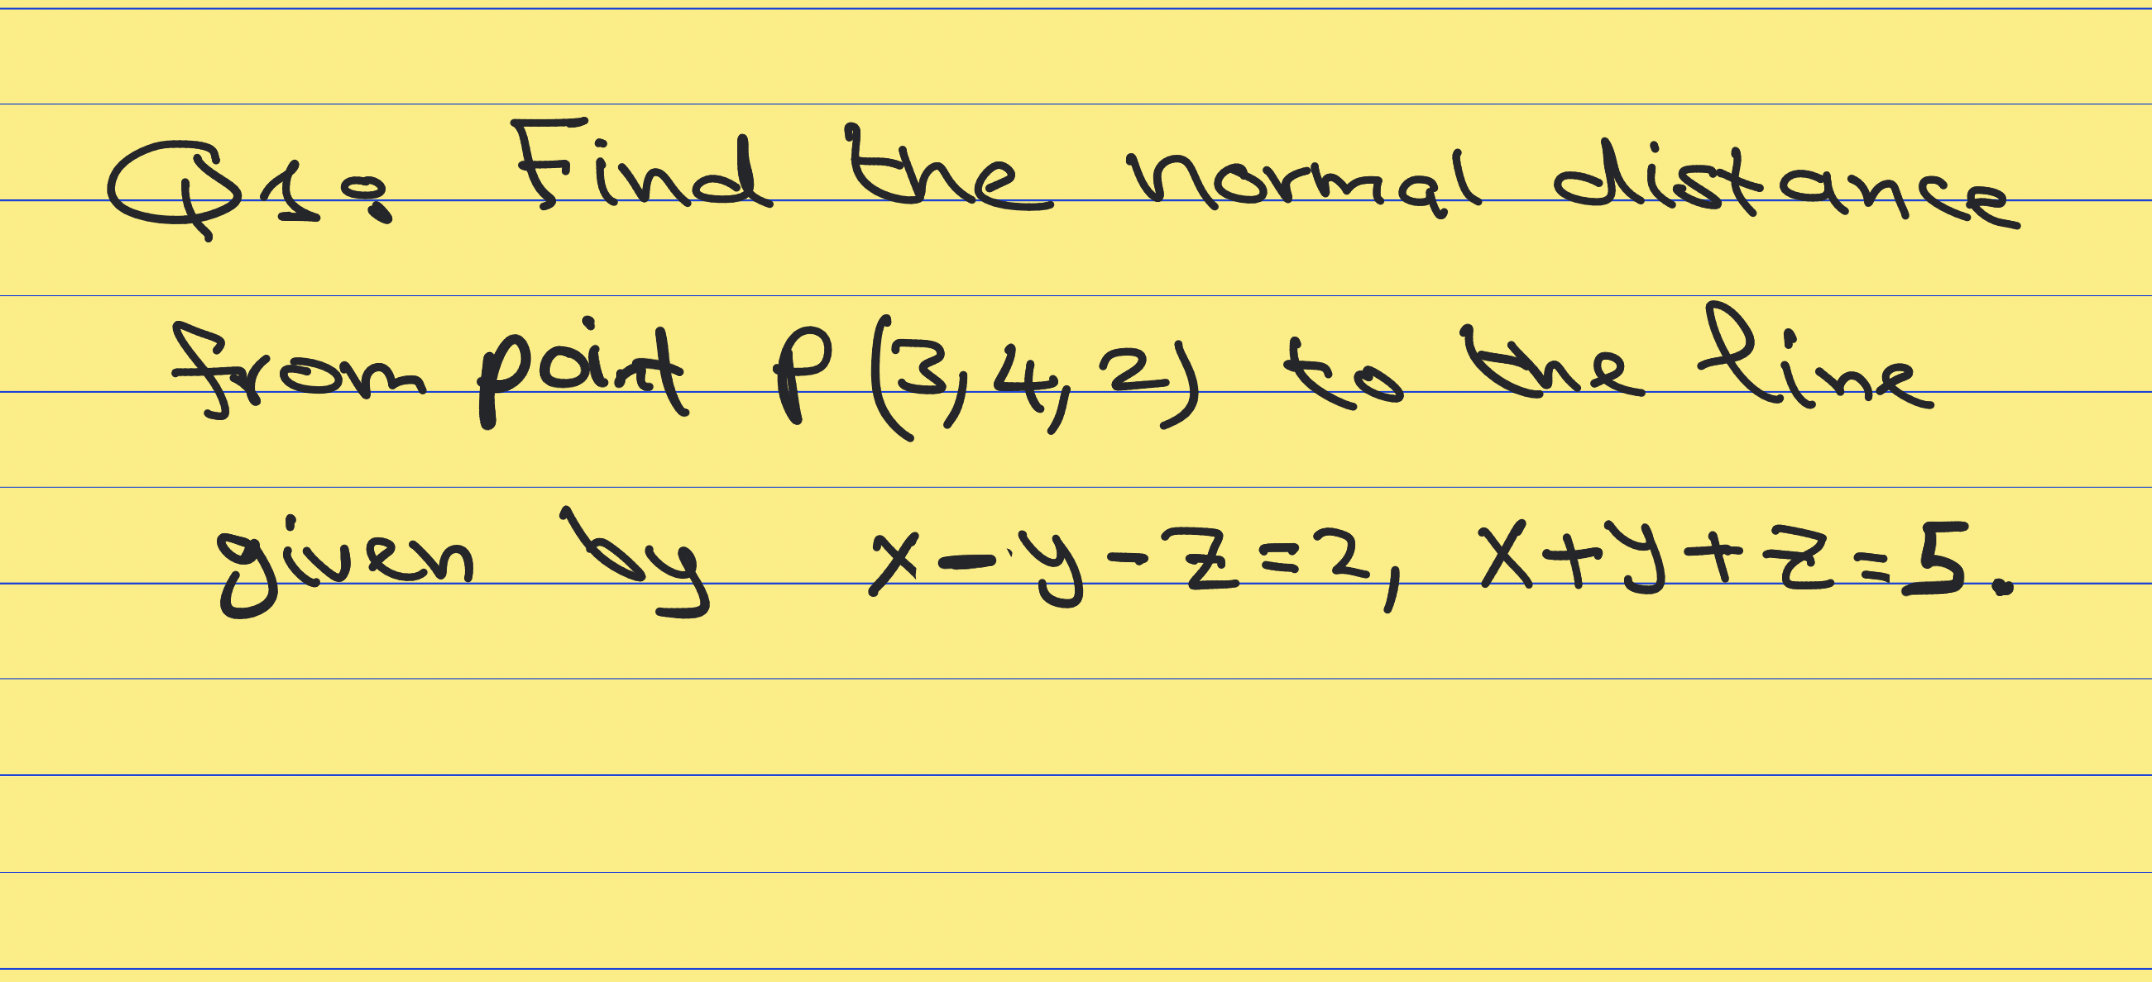 Q1: Find the normal distance
from point P(3,4,2) to the line
given by x-y-z=2, x+y+z=5.